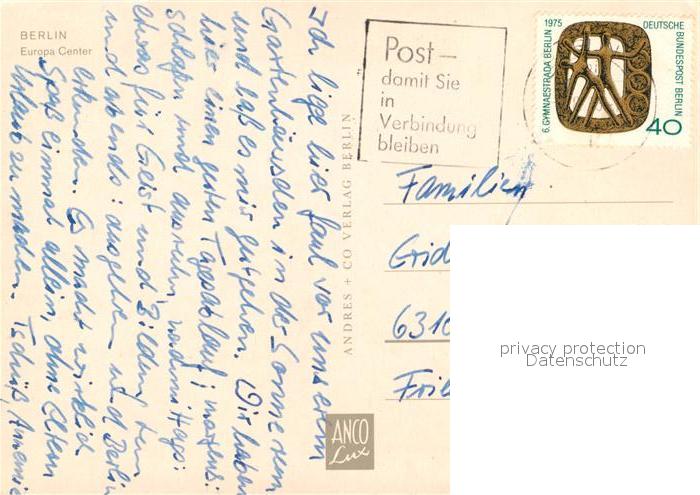 BERLIN
Europa Center
Ich liege hier faul vor unserem
Gartenhäuschen in der Sonne
und laß es mir gutgehen. Wir haben
hier einen guten Tagesablauf; morgens:
schlafen und ausruhn, nachmittags:
etwas für Geist und Bildung tun
und abends: ausgehen und Berlin
erkunden. Es macht wirklich
Spaß einmal allein, ohne Eltern
Urlaub zu machen. Tschüß, Annemie
ANDRES + CO VERLAG BERLIN
ANCO
Lux
Post—
damit Sie
in
Verbindung
bleiben
6. GYMNAESTRADA BERLIN 1975
DEUTSCHE
BUNDESPOST BERLIN
40
Familien
Grid
6310
Frie
privacy protection
Datenschutz